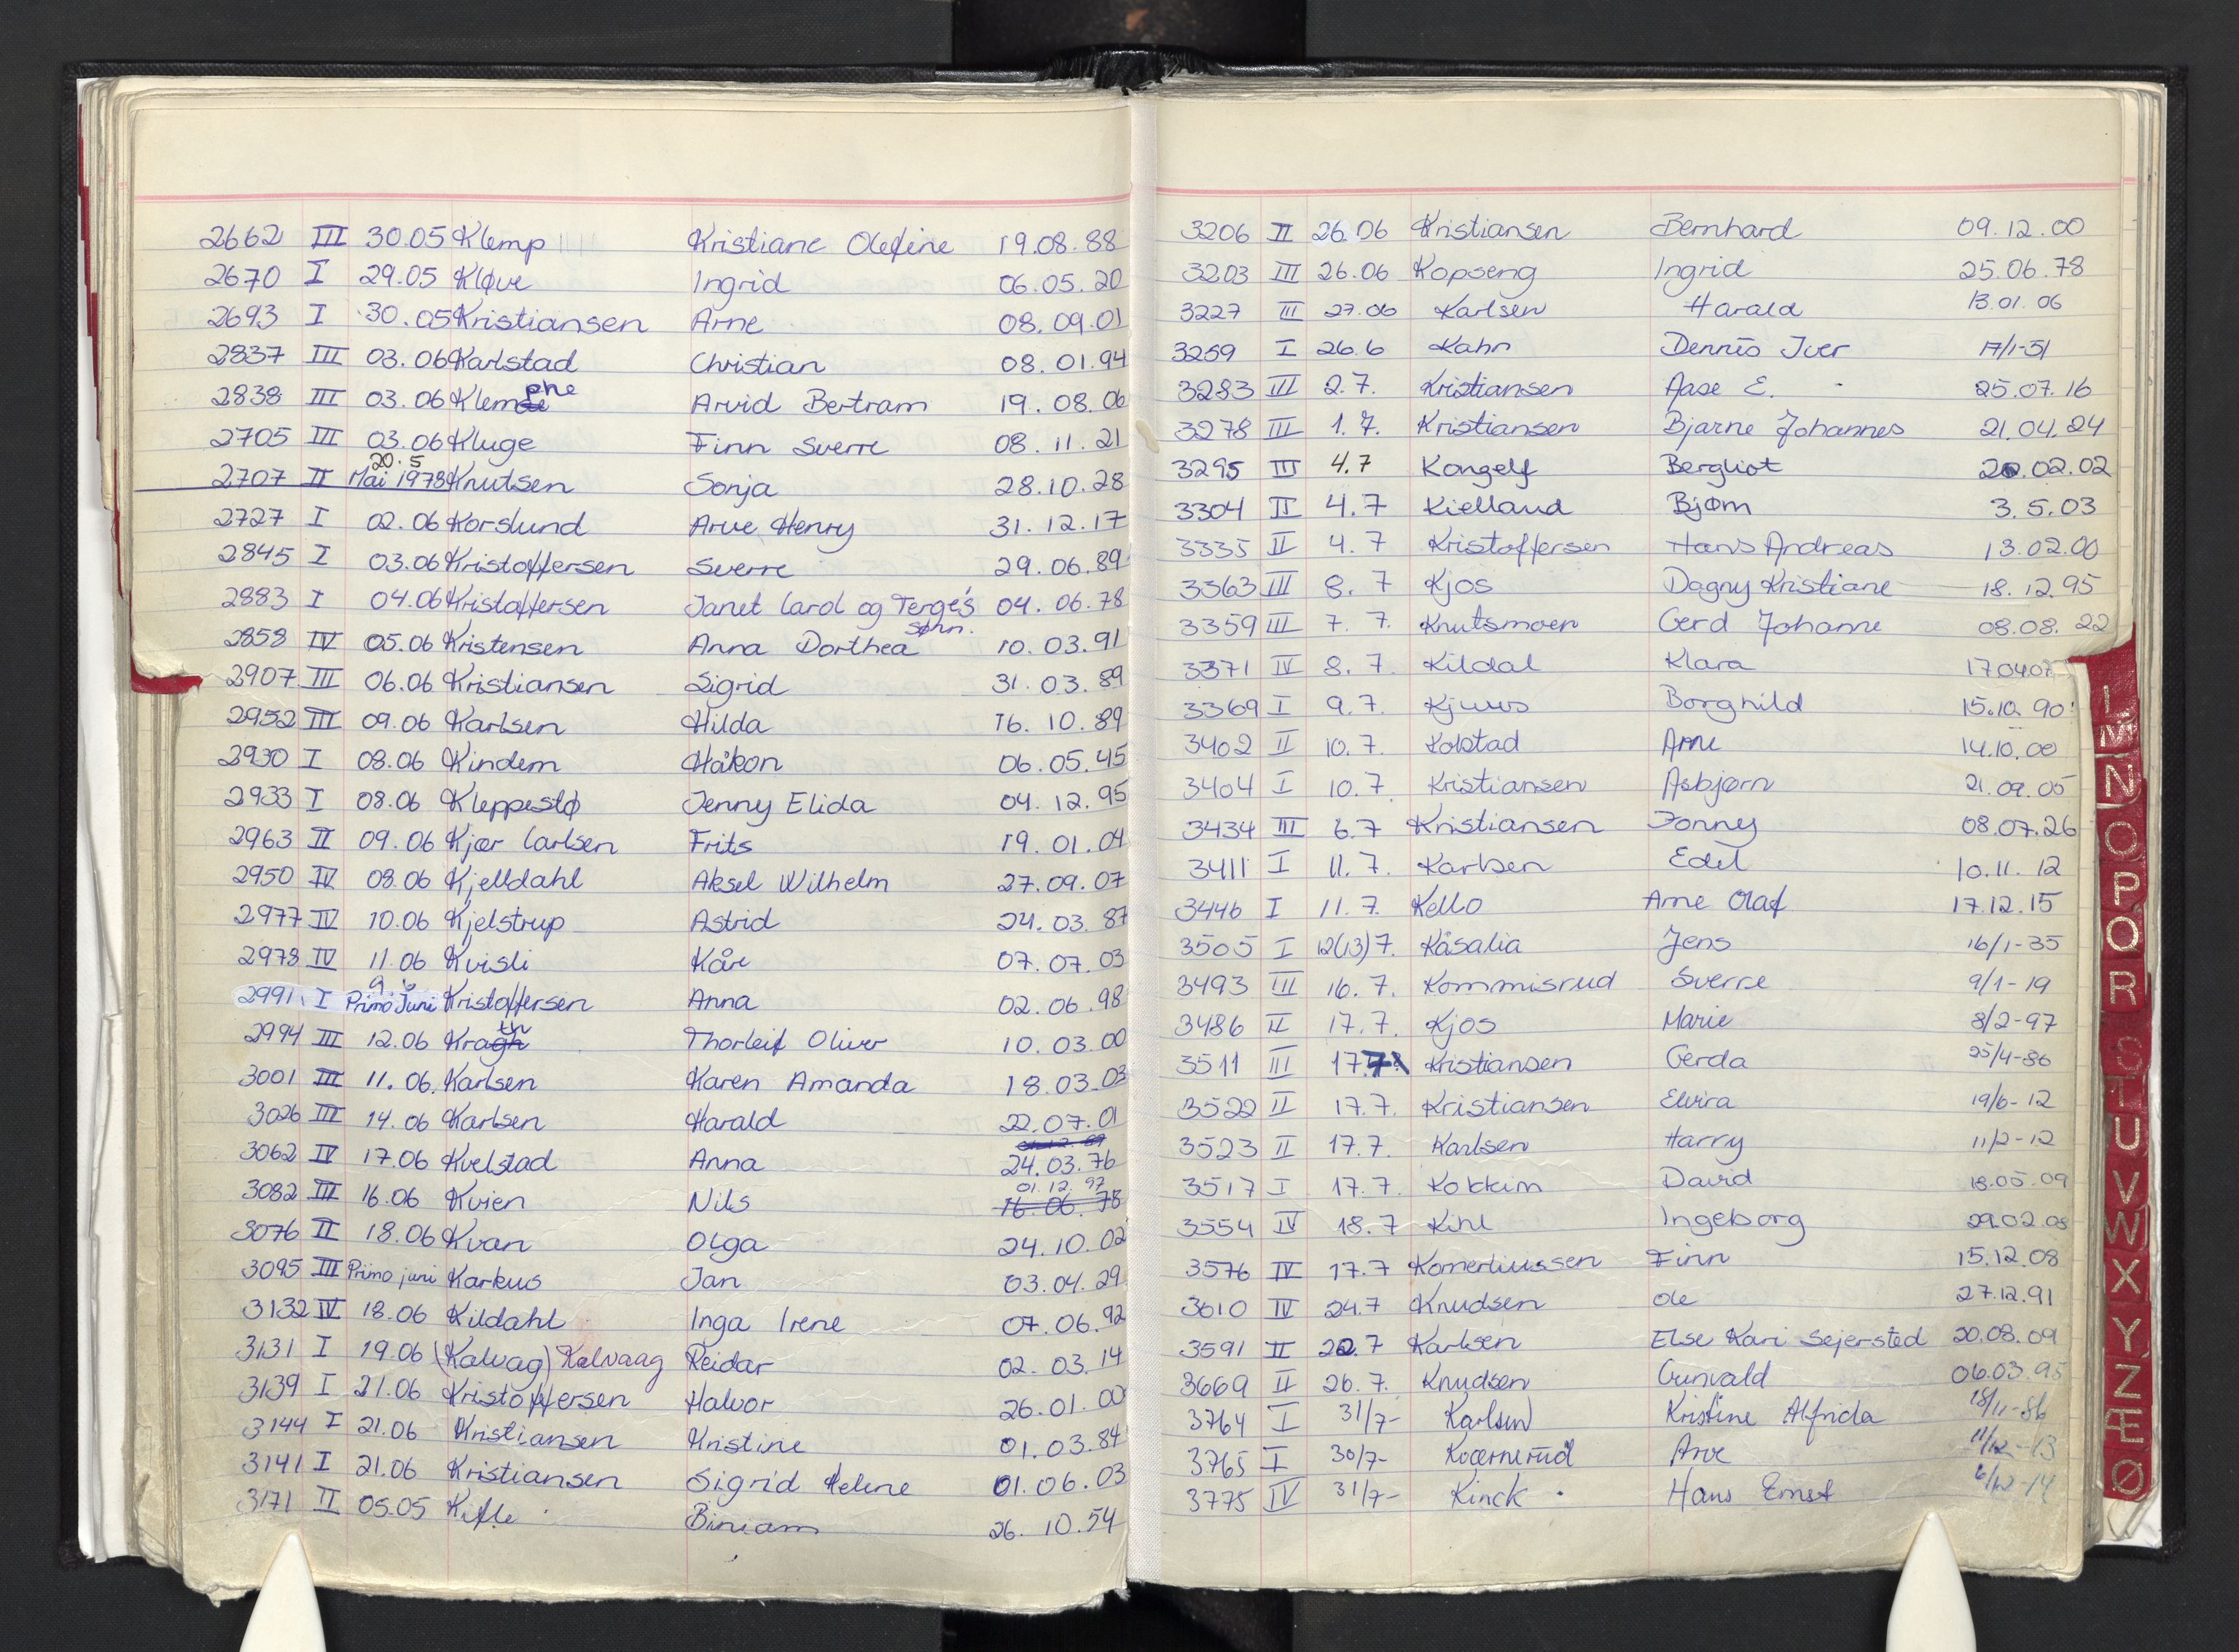 2662 III 30.05 Klemp Kristiane Olefine 19.08.88
2670 I 29.05 Kløve Ingrid 06.05.20
2693 I 30.05 Kristiansen Arne 08.09.01
2837 III 03.06 Karlstad Christian 08.01.94
2838 III 03.06 Klemphe Arvid Bertram 19.08.06
2705 III 03.06 Kluge Finn Sverre 08.11.21
20.5
2707 II Mai 1978 Knutsen Sonja 28.10.28
2727 I 02.06 Korslund Arve Henry 31.12.17
2845 I 03.06 Kristoffersen Sverre 29.06.89
2883 I 04.06 Kristoffersen Janet Carol og Terge's søhn. 04.06.78
2858 IV 05.06 Kristensen Anna Dorthea 10.03.91
2907 III 06.06 Kristiansen Sigrid 31.03.89
2952 III 09.06 Karlsen Hilda 16.10.89
2930 I 08.06 Kindem Håkon 06.05.45
2933 I 08.06 Kleppestø Jenny Elida 04.12.95
2963 II 09.06 Kjær Carlsen Frits 19.01.04
2950 IV 08.06 Kjelldahl Aksel Wilhelm 27.09.07
2977 IV 10.06 Kjelstrup Astrid 24.03.87
2978 IV 11.06 Kvisli Kåre 07.07.03
9.6
2991 I Primo Juni Kristoffersen Anna 02.06.98
2994 III 12.06 Kragh th Thorleif Oliver 10.03.00
3001 III 11.06. Karlsen Karen Amanda 18.03.03
3026 III 14.06 Karlsen Harald 22.07.01
3062 IV 17.06 Kvelstad Anna 24.03.76
01.12.97
3082 III 16.06 Kvien Nils 16.06.78
3076 II 18.06 Kvan Olga 24.10.02
3095 III Primo juni Karkus Jan 03.04.29
3132 IV 18.06 Kildahl Inga Irene 07.06.92
3131 I 19.06 (Kalvag) Kalvaag Reidar 02.03.14
3139 I 21.06 Kristoffersen Halvor 26.01.00
3144 I 21.06 Kristiansen Kristine 01.03.84
3141 I 21.06 Kristiansen Sigrid Helene 01.06.03
3171 II 05.05 Kifle Biniam 26.10.54
3206 II 26.06 Kristiansen Bernhard 09.12.00
3203 III 26.06 Kopseng Ingrid 25.06.78
3227 III 27.06 Karlsen Harald 13.01.06
3259 I 26.6 Kahn Dennis Iver 17/1-51
3283 III 2.7. Kristiansen Aase E. 25.07.16
3278 III 1.7. Kristiansen Bjarne Johannes 21.04.24
3295 III 4.7 Kongelf Bergliot 20.02.02
3304 II 4.7 Kielland Bjørn 3.5.03
3335 II 4.7 Kristoffersen Hans Andreas 13.02.00
3363 III 8.7 Kjos Dagny Kristiane 18.12.95
3359 III 7.7. Knutsmoen Gerd Johanne 08.08.22
3371 IV 8.7. Kildal Klara 17.04.07
3369 I 9.7. Kjuus Borghild 15.10.90
3402 II 10.7. Kolstad Arne 14.10.00
3404 I 10.7. Kristiansen Asbjørn 21.09.05
3434 III 6.7 Kristiansen Jonny 08.07.26
3411 I 11.7. Karlsen Edel 10.11.12
3446 I 11.7. Kello Arne Olaf 17.12.15
3505 I 12(13)7. Kåsalia Jens 16/1-35
3493 III 16.7. Kommisrud Sverre 9/1-19
3486 II 17.7. Kjos Marie 8/2-97
3511 III 17.7. Kristiansen Gerda 25/4-86
3522 II 17.7. Kristiansen Elvira 19/6-12
3523 II 17.7. Karlsen Harry 11/2-12
3517 I 17.7. Kokkim David 18.05.09
3554 IV 18.7 Kihl Ingeborg 29.02.08
3576 IV 17.7 Kornerliussen Finn 15.12.08
3610 IV 24.7 Knudsen Ole 27.12.91
3591 II 22.7 Karlsen Else Kari Sejersted 20.08.09
3669 II 26.7. Knudsen Gunvald 06.03.95
3764 I 31/7- Karlsen Kristine Alfrida 18/11-86
3765 I 30/7- Kværnerud Arve 11/12-13
3775 IV 31/7- Kinck Hans Ernst 6/12-14
L
M
N
O
P
Q
R
S
T
U
V
W
X
Y
Z
Æ
Ø